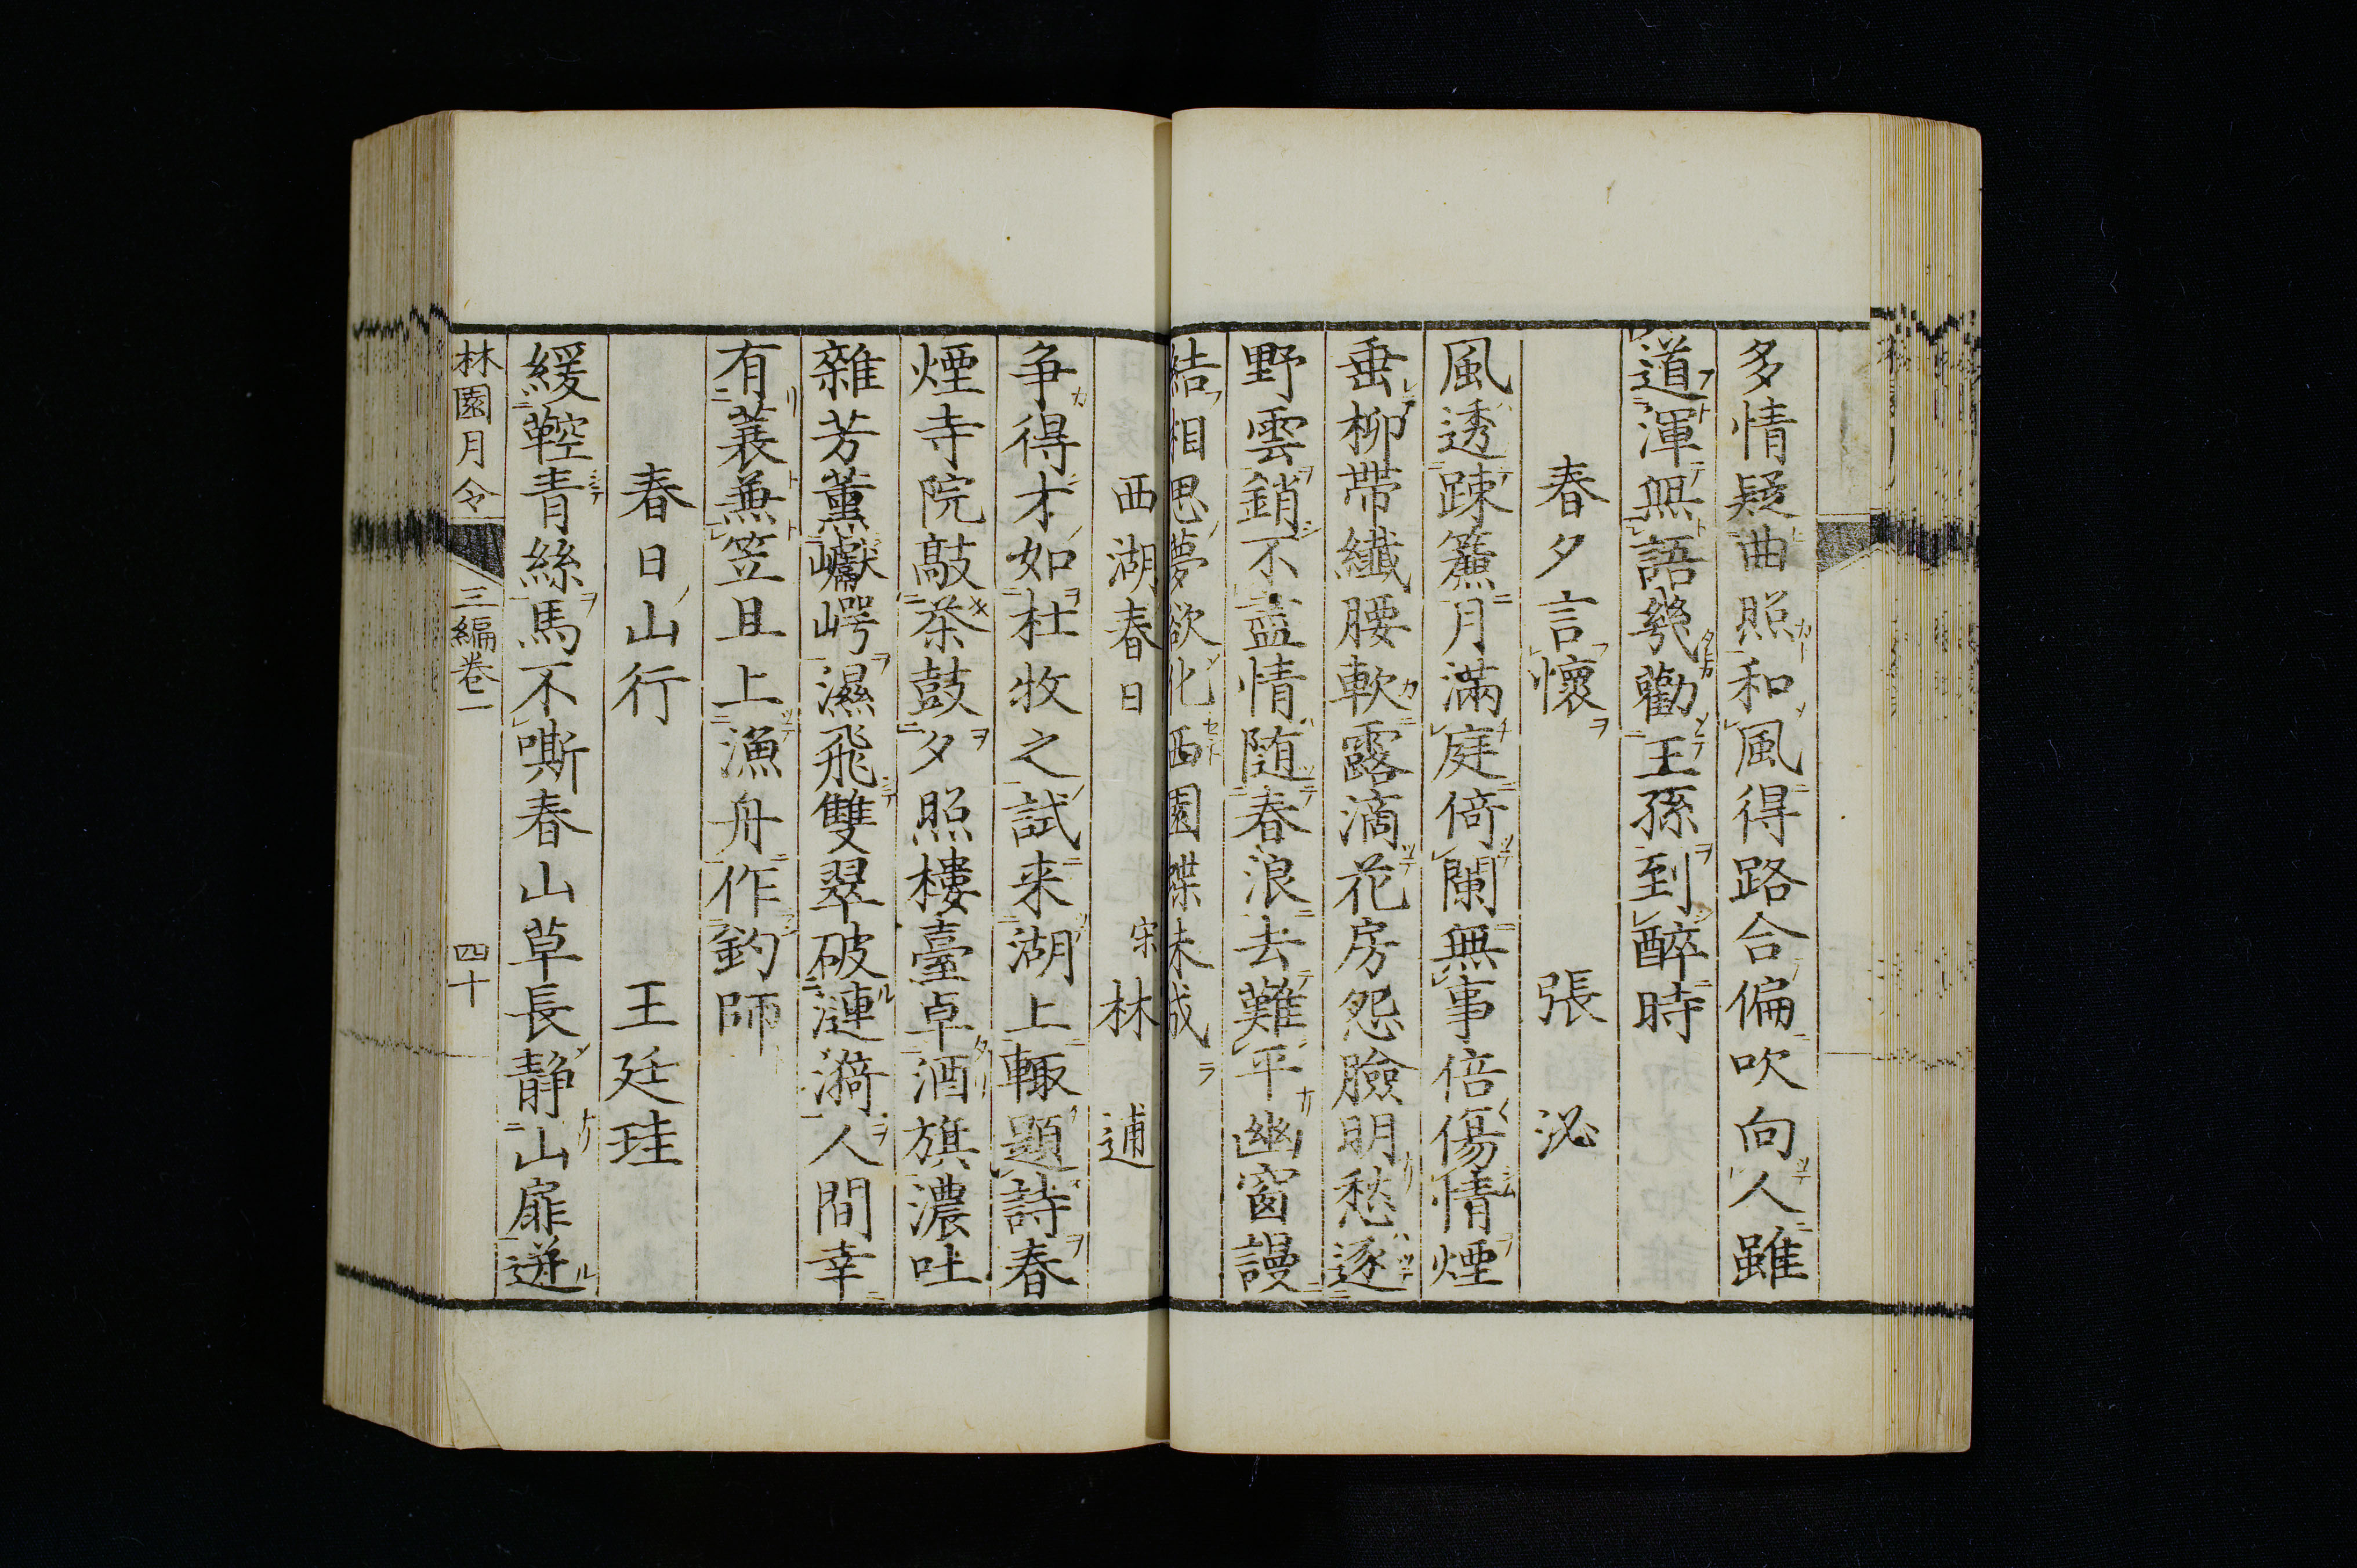 多情疑曲照和風得路合偏吹向人雖
道渾無語幾勸王孫到醉時
春夕言懷 張泌
風透疎簾月滿庭倚闌無事倍傷情煙
垂柳帶纖腰軟露滴花房怨臉明愁逐
野雲銷不盡情随春浪去難平幽窗謾
結相思夢欲化西園蝶未成
西湖春日 宋林逋
争得才如杜牧之試来湖上輙題詩春
煙寺院敲茶鼓夕照樓臺卓酒旗濃吐
雜芳薰巘崿濕飛雙翠破漣漪人間幸
有蓑兼笠且上漁舟作釣師
春日山行 王廷珪
緩鞚青絲馬不嘶春山草長静山扉逰
林園月令 三編卷一 四十